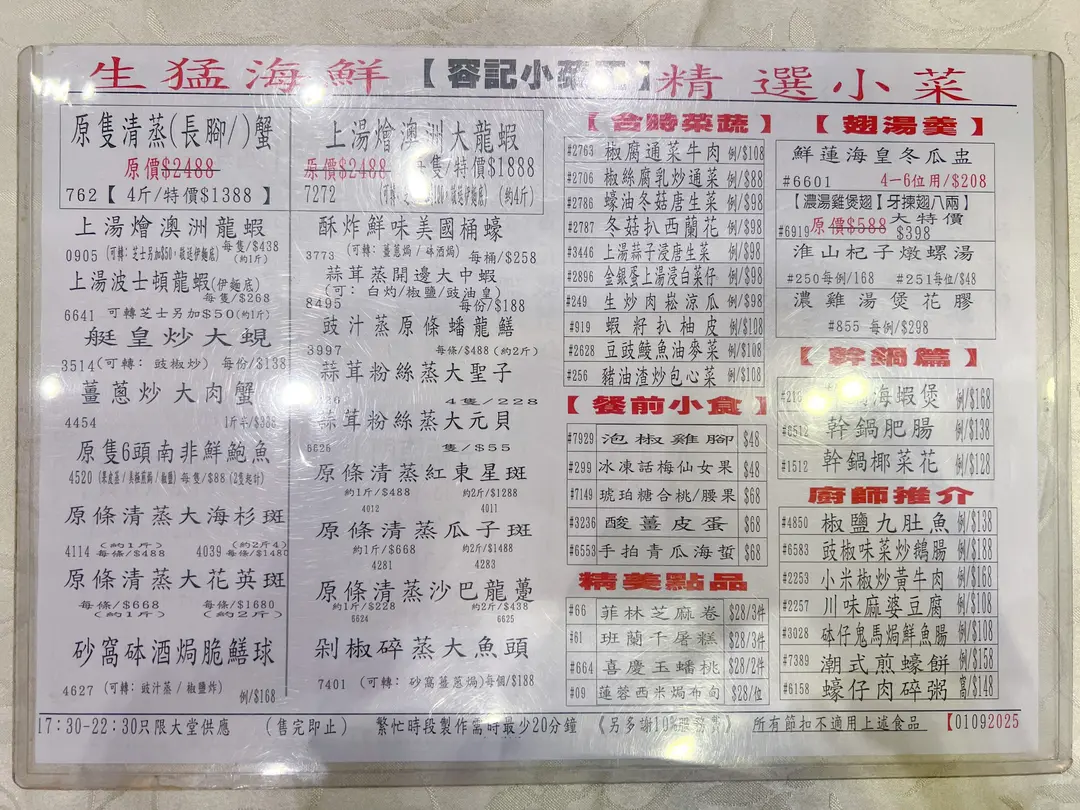 生猛海鮮
【容記小菜王】
精選小菜
原隻清蒸(長腳/)蟹
原價$2488
762【 4斤/特價$1388 】
上湯燴澳洲龍蝦
0905 (可轉: 芝士另加$50, 敬送伊麵底) 每隻/$438
(約1斤)
上湯波士頓龍蝦(伊麵底)
每隻/$268
6641 可轉芝士另加$50(約1斤)
艇皇炒大蜆
3514(可轉: 豉椒炒) 每份/$138
薑蔥炒大肉蟹
4454
原隻6頭南非鮮鮑魚
4520 每隻/$88 (2隻起計)
原條清蒸大海杉斑
(約1斤) (約2斤4)
4114 每條/$488 4039 每條/$1440
原條清蒸大花英斑
每條/$668 每條/$1680
(約1斤) (約2斤)
砂窩砵酒焗脆鱔球
4627 (可轉: 豉汁蒸/椒鹽炸)
例/$168
上湯燴澳洲大龍蝦
原價$2488 隻/特價$1888
7272 (約4斤)
酥炸鮮味美國桶蠔
3773 (可轉: 薑蔥焗/砵酒焗) 每桶/$258
蒜茸蒸開邊大中蝦
(可: 白灼/椒鹽/豉油皇)
8495 每份/$188
豉汁蒸原條蟠龍鱔
3997 每條/$488 (約2斤)
蒜茸粉絲蒸大聖子
4隻/228
蒜茸粉絲蒸大元貝
6626 隻/$55
原條清蒸紅東星斑
約1斤/$488 約2斤/$1288
4012 4011
原條清蒸瓜子斑
約1斤/$668 約2斤/$1488
4281 4283
原條清蒸沙巴龍躉
約1斤/$228 約2斤/$438
6624 6625
剁椒碎蒸大魚頭
7401 (可轉: 砂窩薑蔥焗)每個/$188
【合時菜蔬】
#2763 椒腐通菜牛肉 例/$108
#2706 椒絲腐乳炒通菜 例/$88
#2786 蠔油冬菇唐生菜 例/$98
#2787 冬菇扒西蘭花 例/$98
#3446 上湯蒜子浸唐生菜 例/$98
#2896 金銀蛋上湯浸白菜仔 例/$98
#249 生炒肉崧涼瓜 例/$98
#919 蝦籽扒柚皮 例/$108
#2628 豆豉鯪魚油麥菜 例/$108
#256 豬油渣炒包心菜 例/$108
【餐前小食】
#7929 泡椒雞腳 $48
#299 冰凍話梅仙女果 $48
#7149 琥珀糖合桃/腰果 $68
#3236 酸薑皮蛋 $68
#6553 手拍青瓜海蜇 $68
精美點品
#66 菲林芝麻卷 $28/3件
#61 班蘭千層糕 $28/3件
#664 喜慶玉蟠桃 $28/2件
#09 蓮蓉西米焗布甸 $28/位
【翅湯羹】
鮮蓮海皇冬瓜盅
#6601 4-6位用/$208
【濃湯雞煲翅】【牙揀翅八兩】
#6919 原價$588 大特價
$398
淮山杞子燉螺湯
#250每例/168 #251每位/$48
濃雞湯煲花膠
#855 每例/$298
【幹鍋篇】
海蝦煲 例/$168
#6512 幹鍋肥腸 例/$138
#1512 幹鍋椰菜花 例/$128
廚師推介
#4850 椒鹽九肚魚 例/$138
#6583 豉椒味菜炒鵝腸 例/$188
#2253 小米椒炒黃牛肉 例/$168
#2257 川味麻婆豆腐 例/$108
#3028 砵仔鬼馬焗鮮魚腸 例/$108
#7389 潮式煎蠔餅 例/$158
#6158 蠔仔肉碎粥 窩/$148
17:30-22:30只限大堂供應 (售完即止) 繁忙時段製作需時最少20分鐘 《另多謝10%服務費》 所有節扣不適用上述食品 【01092025